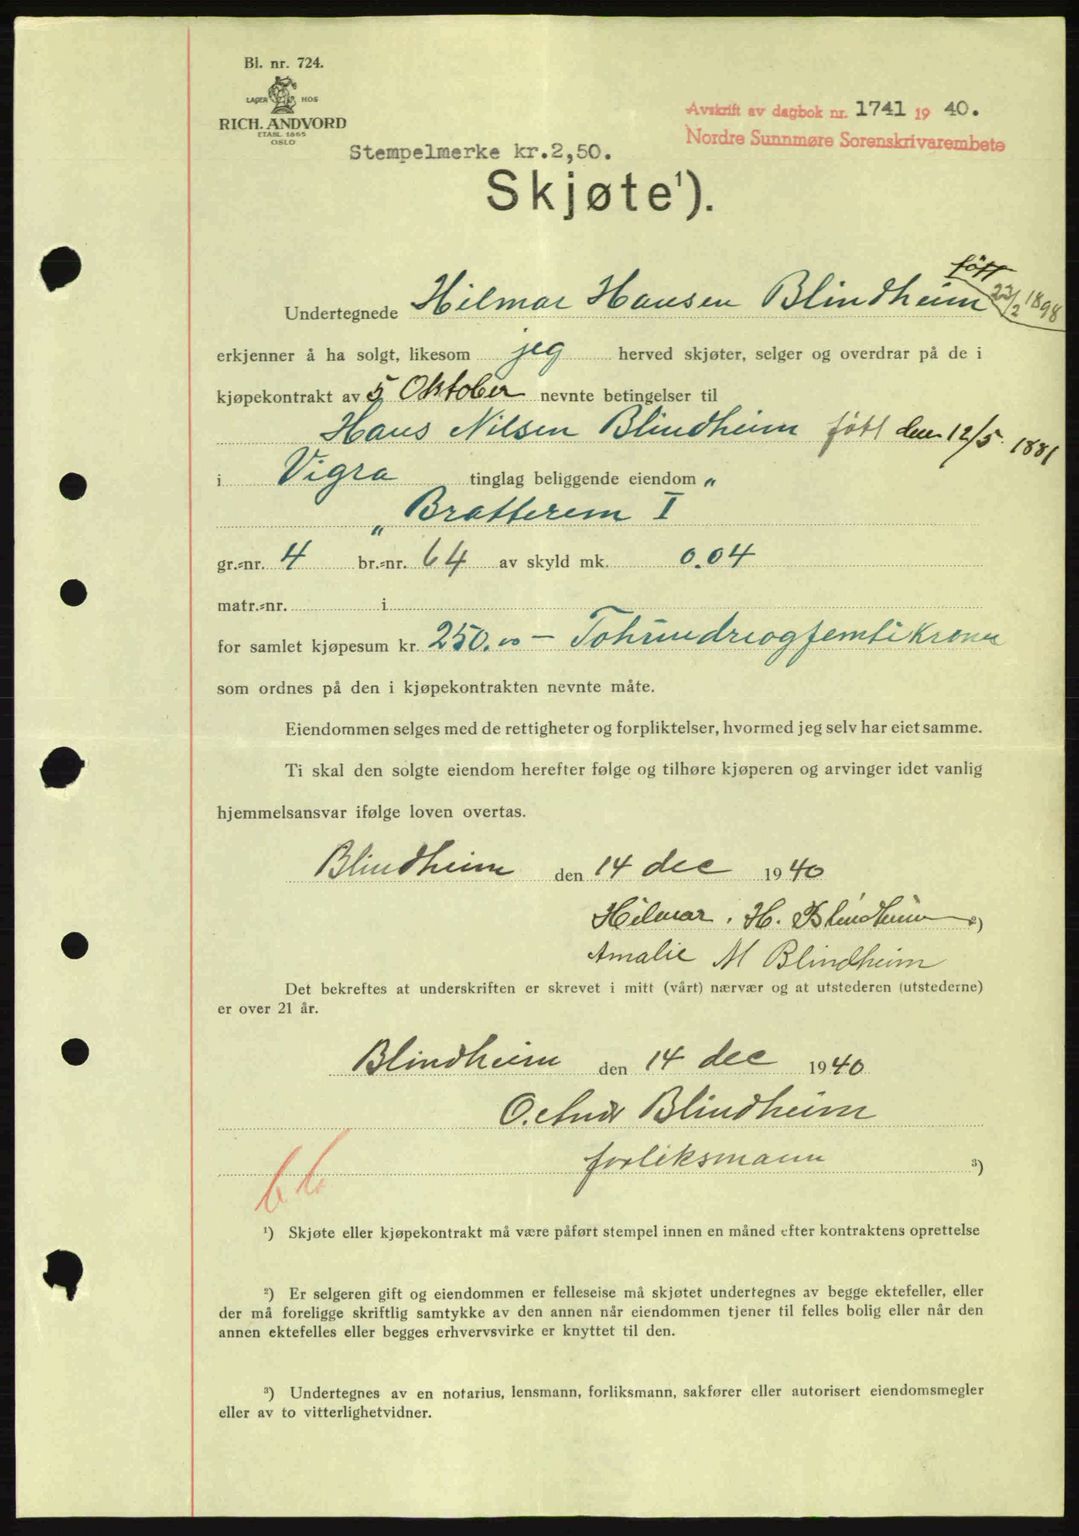 Bl. nr. 724.
LAGER HOS
RICH. ANDVORD
ETABL. 1865
OSLO
Avskrift av dagbok nr. 1741 1940.
Nordre Sunnmøre Sorenskrivarembete
Stempelmerke kr.2,50.
Skjøte¹).
født
Undertegnede Hilmar Hansen Blindheim 22/2 1898
erkjenner å ha solgt, likesom jeg herved skjøter, selger og overdrar på de i
kjøpekontrakt av 5 Oktober nevnte betingelser til
Hans Nilsen Blindheim født den 12/5 1881
i Vigra tinglag beliggende eiendom "
" Bratterem I
gr.-nr. 4 br.-nr. 64 av skyld mk. 0.04
matr.-nr. i
for samlet kjøpesum kr. 250.00 — Tohundreogfemtikroner
som ordnes på den i kjøpekontrakten nevnte måte.
Eiendommen selges med de rettigheter og forpliktelser, hvormed jeg selv har eiet samme.
Ti skal den solgte eiendom herefter følge og tilhøre kjøperen og arvinger idet vanlig
hjemmelsansvar ifølge loven overtas.
Blindheim den 14 dec 1940
Hilmar. H. Blindheim ²)
Amalie M Blindheim
Det bekreftes at underskriften er skrevet i mitt (vårt) nærvær og at utstederen (utstederne)
er over 21 år.
Blindheim den 14 dec 1940
Blindheim
forliksmann ³)
¹) Skjøte eller kjøpekontrakt må være påført stempel innen en måned efter kontraktens oprettelse
²) Er selgeren gift og eiendommen er felleseise må skjøtet undertegnes av begge ektefeller, eller
der må foreligge skriftlig samtykke av den annen når eiendommen tjener til felles bolig eller når den
annen ektefelles eller begges erhvervsvirke er knyttet til den.
³) Undertegnes av en notarius, lensmann, forliksmann, sakfører eller autorisert eiendomsmegler
eller av to vitterlighetvidner.